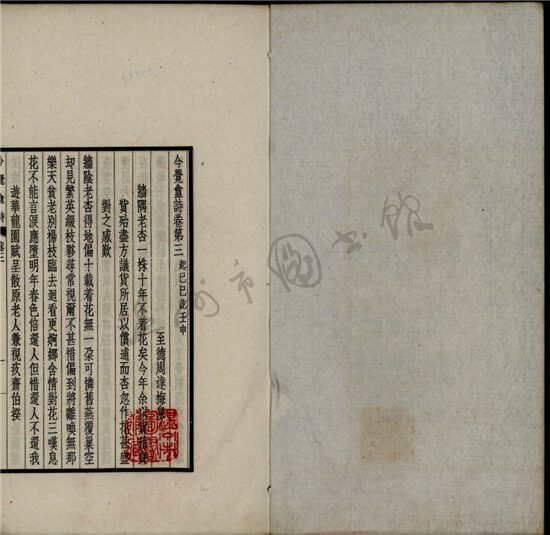 今覺盦詩卷第三 起己巳訖壬申
至德周達梅
牆隅老杏一株十年不着花矣今年余以
貨殆盡方議貨所居以償逋而杏忽作花甚盛
對之感歎
牆陰老杏得地偏十載着花無一朶可憐舊燕覆巢空
却見繁英綴枝夥尋常視爾不甚惜偏到將離喚無那
樂天貧老別楊枝臨去迴看更婀娜含情對花三嘆息
花不能言淚應墮明年春色倍還人但惜還人不還我
遊華龍園賦呈散原老人兼視疚齋伯揆
今覺盦詩 卷三 一
州市圖書館